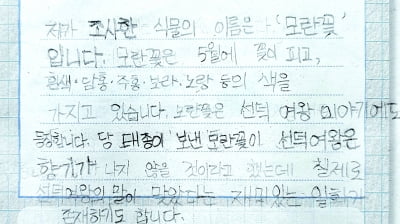 제가 조사한 식물의 이름은 '모란꽃'
입니다. 모란꽃은 5월에 꽃이 피고,
흰색·담홍·주홍·보라·노랑 등의 색을
가지고 있습니다. 노란꽃은 선덕 여왕 이야기에도
등장합니다. 당 태종이 보낸 모란꽃이 선덕여왕은
향기가 나지 않을 것이라고 했는데 실제로
선덕여왕의 말이 맞았다는 재미있는 일화가
존재하기도 합니다.